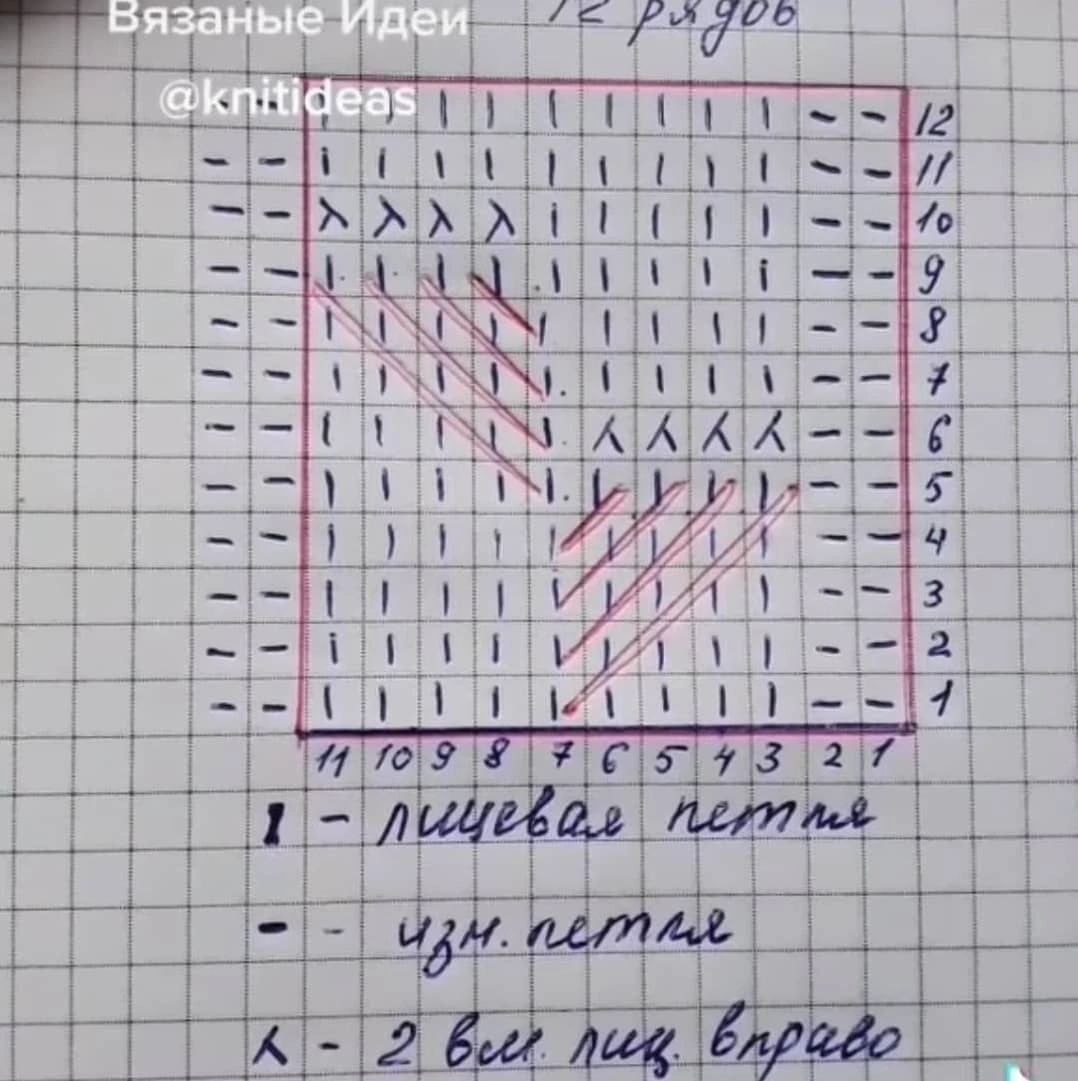 Вязаные Идеи
12 рядов
@knitideas
- - I I I I I I I I I - - 12
- - I I I I I I I I I - - 11
- - λ λ λ λ I I I I I - - 10
- - I I I I I I I I I - - 9
- - I I I I I I I I I - - 8
- - I I I I I I I I I - - 7
- - I I I I I ⅄ ⅄ ⅄ ⅄ - - 6
- - I I I I I I I I I - - 5
- - I I I I I I I I I - - 4
- - I I I I I I I I I - - 3
- - I I I I I I I I I - - 2
- - I I I I I I I I I - - 1
11 10 9 8 7 6 5 4 3 2 1
I - лицевая петля
- - изн. петля
⅄ - 2 вм. лиц. вправо